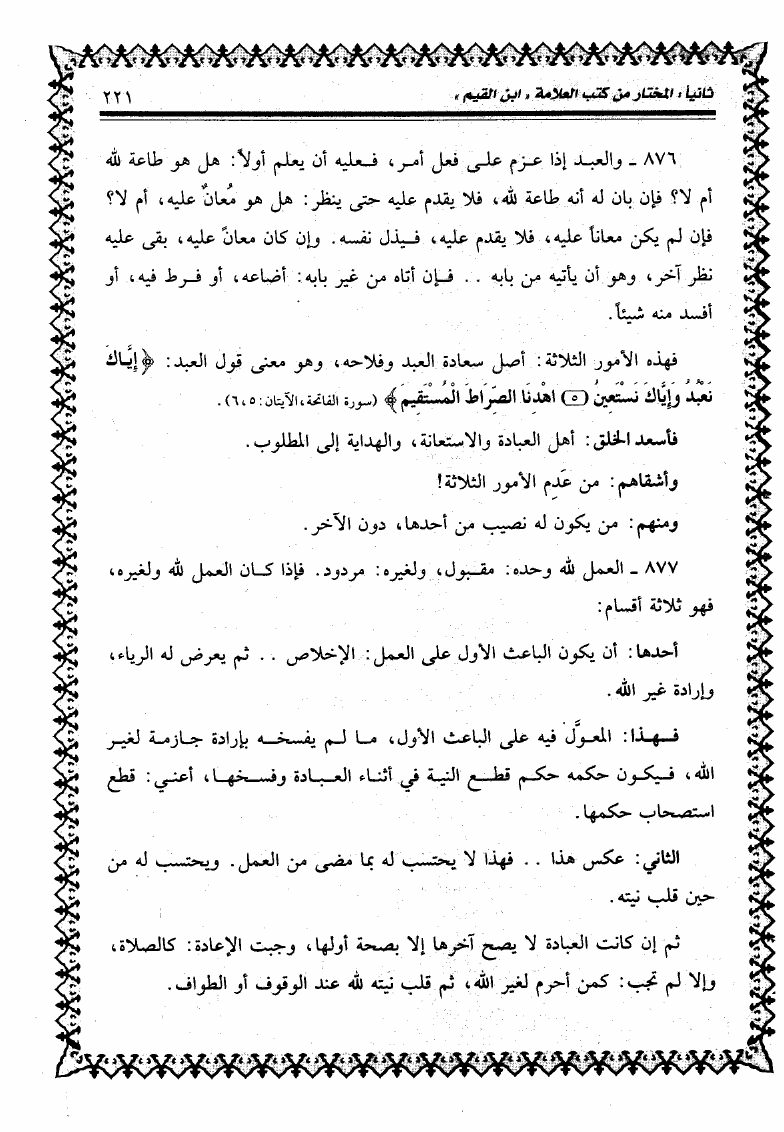 ثانياً : المختار من كتب العلامة « ابن القيم » ٢٢١
٨٧٦ ـ والعبد إذا عزم على فعل أمر، فعليه أن يعلم أولاً: هل هو طاعة لله
أم لا؟ فإن بان له أنه طاعة لله، فلا يقدم عليه حتى ينظر: هل هو مُعانٌ عليه، أم لا؟
فإن لم يكن معاناً عليه، فلا يقدم عليه، فيذل نفسه. وإن كان معانٌ عليه، بقى عليه
نظر آخر، وهو أن يأتيه من بابه .. فإن أتاه من غير بابه: أضاعه، أو فرط فيه، أو
أفسد منه شيئاً.
فهذه الأمور الثلاثة: أصل سعادة العبد وفلاحه، وهو معنى قول العبد: ﴿ إِيَّاكَ
نَعْبُدُ وَإِيَّاكَ نَسْتَعِينُ (٥) اهْدِنَا الصِّرَاطَ الْمُسْتَقِيمَ ﴾ (سورة الفاتحة، الآيتان: ٥، ٦).
فأسعد الخلق: أهل العبادة والاستعانة، والهداية إلى المطلوب.
وأشقاهم: من عَدِم الأمور الثلاثة!
ومنهم: من يكون له نصيب من أحدها، دون الآخر.
٨٧٧ ـ العمل لله وحده: مقبول، ولغيره: مردود. فإذا كان العمل لله ولغيره،
فهو ثلاثة أقسام:
أحدها: أن يكون الباعث الأول على العمل: الإخلاص .. ثم يعرض له الرياء،
وإرادة غير الله.
فهذا: المعوَّل فيه على الباعث الأول، ما لم يفسخه بإرادة جازمة لغير
الله، فيكون حكمه حكم قطع النية في أثناء العبادة وفسخها، أعني: قطع
استصحاب حكمها.
الثاني: عكس هذا .. فهذا لا يحتسب له بما مضى من العمل. ويحتسب له من
حين قلب نيته.
ثم إن كانت العبادة لا يصح آخرها إلا بصحة أولها، وجبت الإعادة: كالصلاة،
وإلا لم تجب: كمن أحرم لغير الله، ثم قلب نيته لله عند الوقوف أو الطواف.